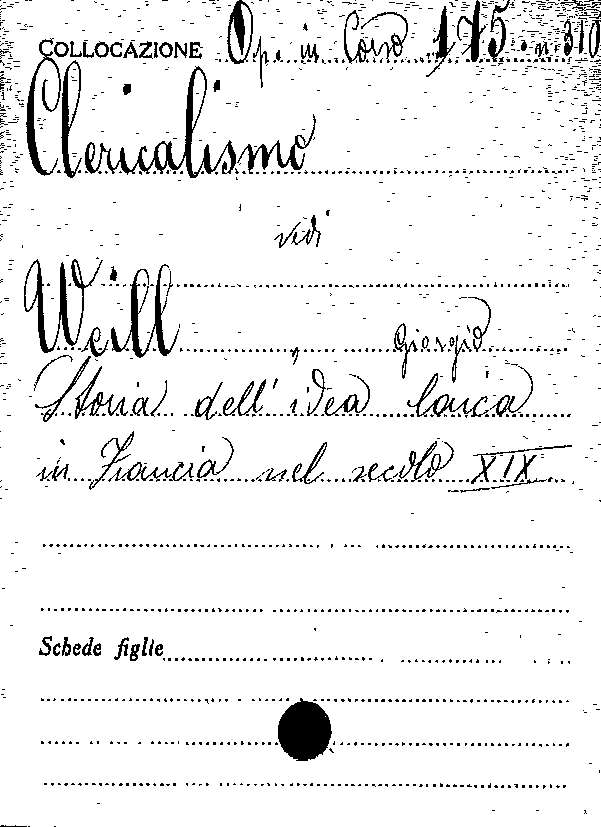 COLLOCAZIONE Op. in Corso 175. n. 310
Clericalismo
vedi
Weill, Giorgio
Storia dell'idea laica
in Francia nel secolo XIX
Schede figlie